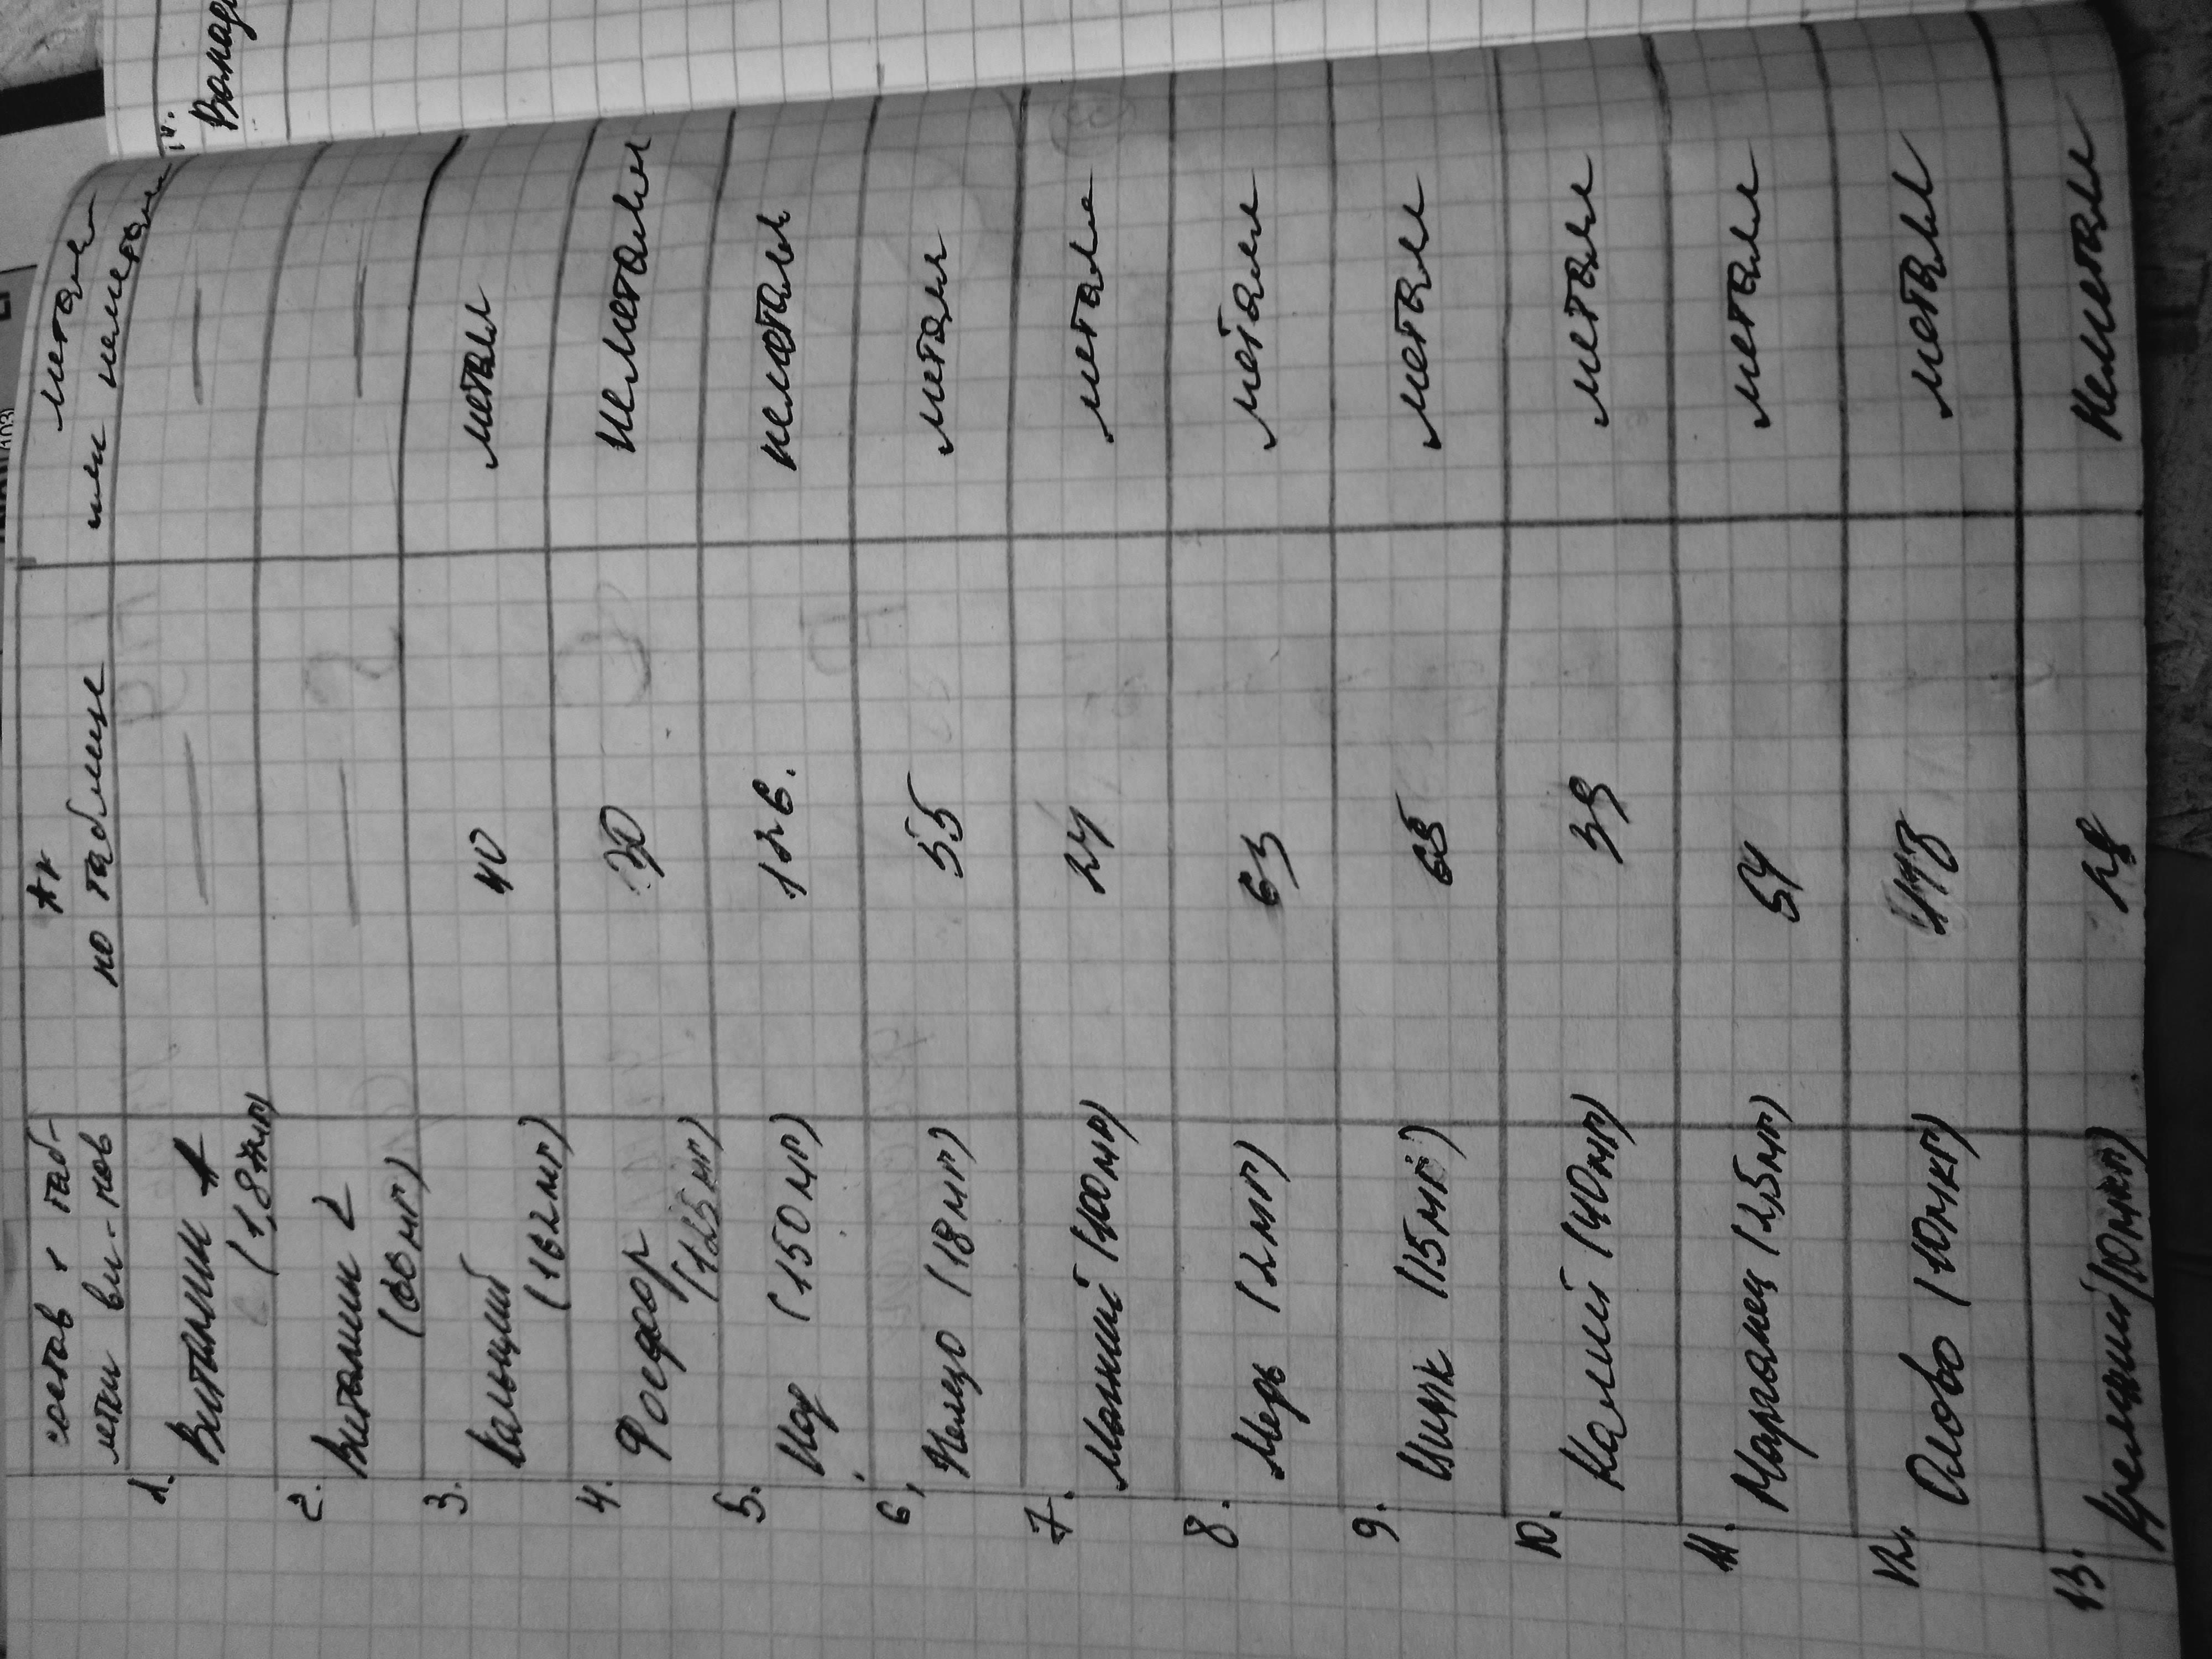 состав 1 таб-
летки ви-нов
Ar
по таблице
металл
или неметалл
1. Витамин А
(1,8 мг)
2. Витамин С
(60 мг)
3. Кальций
(162 мг)
40
металл
4. Фосфор
(125 мг)
30
неметалл
5. Иод (150 мг)
126.
неметалл
6. Железо (18 мг)
55
металл
7. Магний (100 мг)
24
металл
8. Медь (2 мг)
63
металл
9. Цинк (15 мг)
65
металл
10. Калий (40 мг)
39
металл
11. Марганец (2,5 мг)
54
металл
12. Олово (10 мкг)
118
металл
13. Кремний (10 мкг)
28
Неметалл